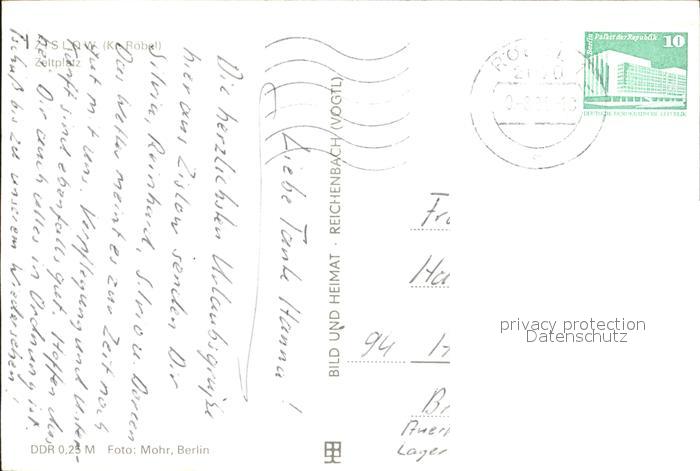 ZISLOW (Kr. Röbel)
Zeltplatz
Liebe Tante Hanna!
Die herzlichsten Urlaubsgrüße
hier aus Zislow senden Dir
Silvia, Reinhard, Silvio u. Doreen
Das Wetter meint es zur Zeit noch
gut mit uns. Verpflegung und Unter-
kunft sind ebenfalls gut. Hoffen das
bei Dir auch alles in Ordnung ist.
Tschüß bis zu unserem Wiedersehen!
DDR 0,25 M Foto: Mohr, Berlin
BILD UND HEIMAT · REICHENBACH (VOGTL)
Berlin Palast der Republik
10
DEUTSCHE DEMOKRATISCHE REPUBLIK
Fr
Ha
94
Lager
privacy protection
Datenschutz